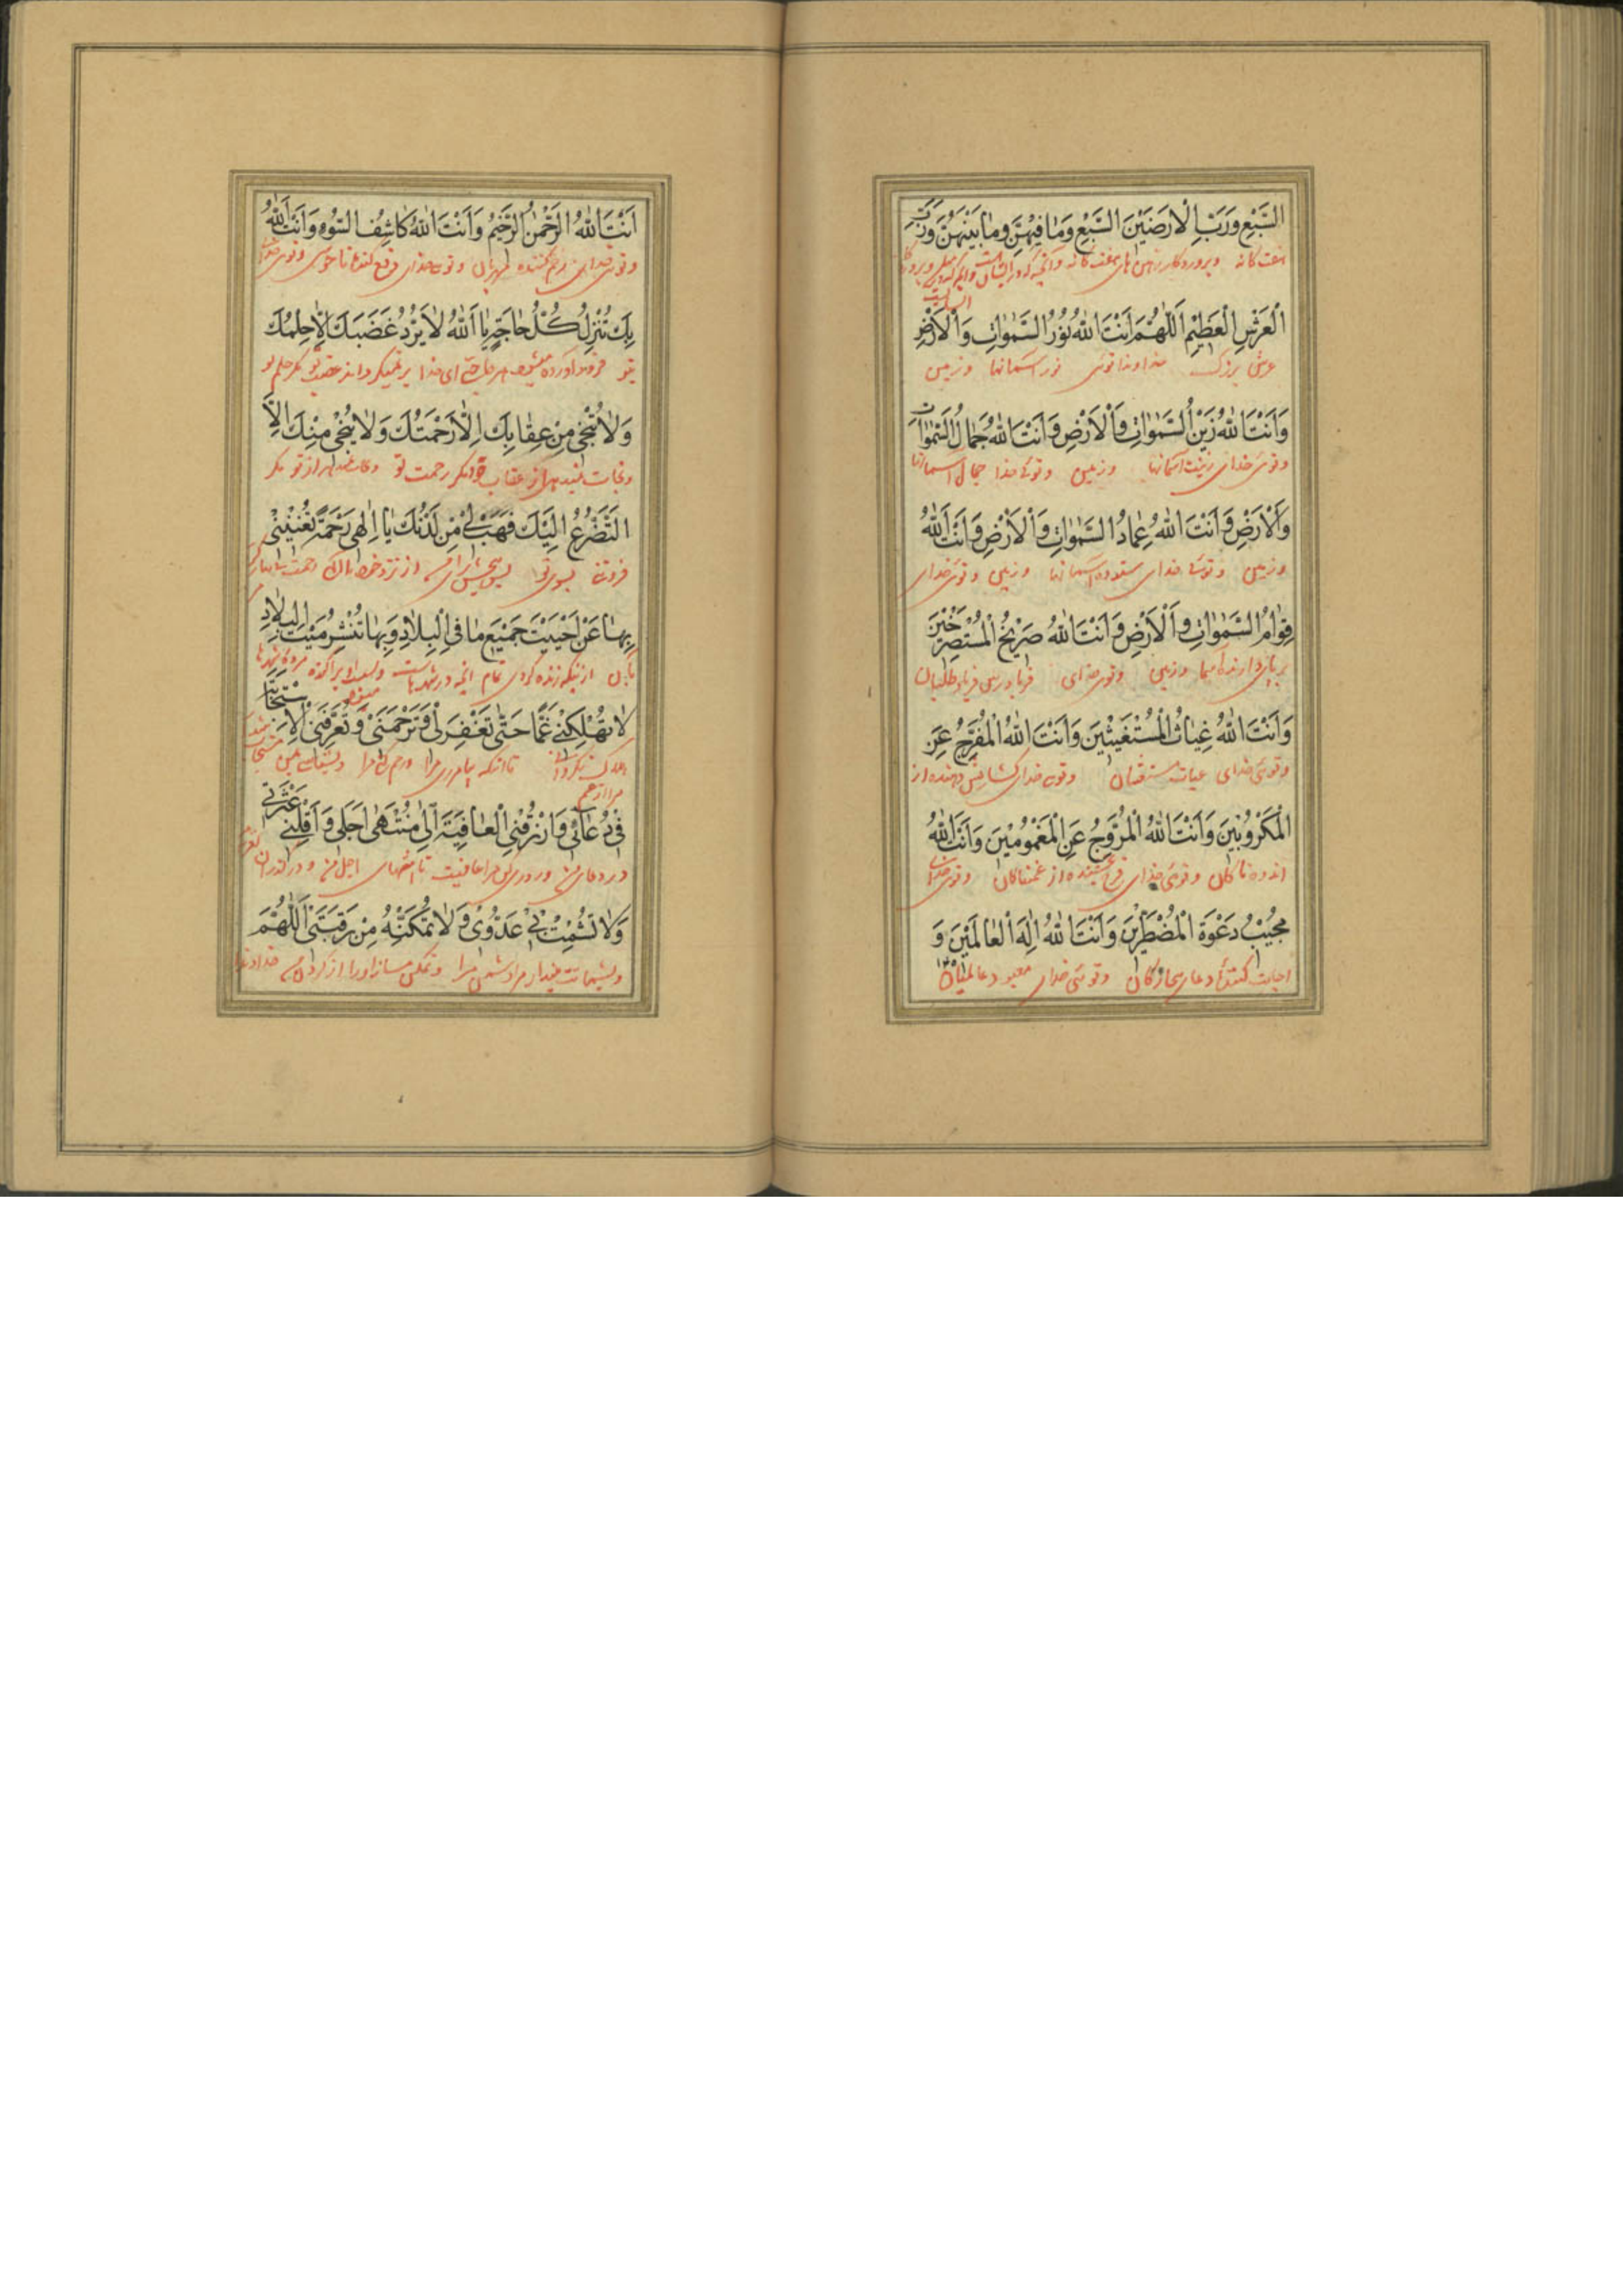 السَّبْعِ وَرَبَّ الْاَرَضَيْنَ السَّبْعِ وَمٰا فِيْهِنَّ وَمٰا بَيْنَهُنَّ وَرَبَّ
هفت کانه و پروردکار زمین های هفت کانه وانچه که در ایشان است
الْعَرْشِ الْعَظِيْمِ اَللّٰهُمَّ اَنْتَ اللّٰهُ نُوْرُ السَّمٰوٰاتِ وَالْاَرْضِ
عرش بزرک خداوندا توئی نور آسمانها و زمین
وَاَنْتَ اللّٰهُ زَيْنُ السَّمٰوٰاتِ وَالْاَرْضِ وَاَنْتَ اللّٰهُ جَمٰالُ السَّمٰوٰاتِ
و توئی خدای زینت آسمانها و زمین و توئی خدا جمال آسمانها
وَالْاَرْضِ وَاَنْتَ اللّٰهُ عِمٰادُ السَّمٰوٰاتِ وَالْاَرْضِ وَاَنْتَ اللّٰهُ
و زمین و توئی خدای ستوده آسمانها و زمین و توئی خدای
قِوٰامُ السَّمٰوٰاتِ وَالْاَرْضِ وَاَنْتَ اللّٰهُ صَرِيْخُ الْمُسْتَصْرِخِيْنَ
و زمین و توئی خدای فریادرس فریاد طلبان
وَاَنْتَ اللّٰهُ غِيٰاثُ الْمُسْتَغِيْثِيْنَ وَاَنْتَ اللّٰهُ الْمُفَرِّجُ عَنِ
و توئی خدای غیاث مستغیثان و توئی خدای کشایش دهنده از
الْمَكْرُوْبِيْنَ وَاَنْتَ اللّٰهُ الْمُرَوِّجُ عَنِ الْمَغْمُوْمِيْنَ وَاَنْتَ اللّٰهُ
اندوهناکان و توئی خدای فرح بخشنده از غمناکان و توئی خدای
مُجِيْبُ دَعْوَةِ الْمُضْطَرِّيْنَ وَاَنْتَ اللّٰهُ اِلٰهُ الْعٰالَمِيْنَ وَ
اجابت کننده دعای بیچارکان و توئی خدای معبود عالمیان
اَنْتَ اللّٰهُ الرَّحْمٰنُ الرَّحِيْمُ وَاَنْتَ اللّٰهُ كٰاشِفُ السُّوْءِ وَاَنْتَ اللّٰهُ
و توئی خدای رحم کننده مهربان و توئی خدای دفع کننده ناخوشی و توئی خدای
بِكَ تُنْزِلُ كُلُّ حٰاجَةٍ يٰا اَللّٰهُ لٰا يَرُدُّ غَضَبَكَ اِلّٰا حِلْمُكَ
بتو فرود آورده میشود هر حاجتی ای خدا بر نمیکرداند غضب تو مکر حلم تو
وَلٰا يُنْجِيْ مِنْ عِقٰابِكَ اِلّٰا رَحْمَتُكَ وَلٰا يُنْجِيْ مِنْكَ اِلَّا
و نجات نمیدهد از عقاب تو مکر رحمت تو و نجات نمیدهد از تو مکر
التَّضَرُّعُ اِلَيْكَ فَهَبْ لِيْ مِنْ لَدُنْكَ يٰا اِلٰهِيْ رَحْمَةً تُغْنِيْنِيْ
فروتنی بسوی تو پس ببخش برای من از نزد خود رحمت
بِهٰا عَنْ اَحْيَيْتَ جَمِيْعَ مٰا فِي الْبِلٰادِ وَبِهٰا تُنْشِرُ مَيْتَ الْبِلٰادِ
بآن از آنکه زنده کردی تمام انچه در شهرهاست مرده شهرها
لٰا تُهْلِكْنِيْ غَمًّا حَتّٰى تَغْفِرَ لِيْ وَتَرْحَمَنِيْ وَتُعَرِّفَنِيْ الْاِسْتِجٰابَةَ
هلاک تا آنکه بیامرزی مرا و رحم کنی مرا
فِيْ دُعٰائِيْ وَارْزُقْنِي الْعٰافِيَةَ اِلٰى مُنْتَهٰى اَجَلِيْ وَاَقِلْنِيْ عَثْرَتِيْ
در دعای من و روزی کن مرا عافیت تا منتهای اجل من و درکذران
وَلٰا تُشْمِتْ بِيْ عَدُوِّيْ وَلٰا تُمَكِّنْهُ مِنْ رَقَبَتِيْ اَللّٰهُمَّ
دشمن مرا و تمکین مساز او را از کردن من خداوندا